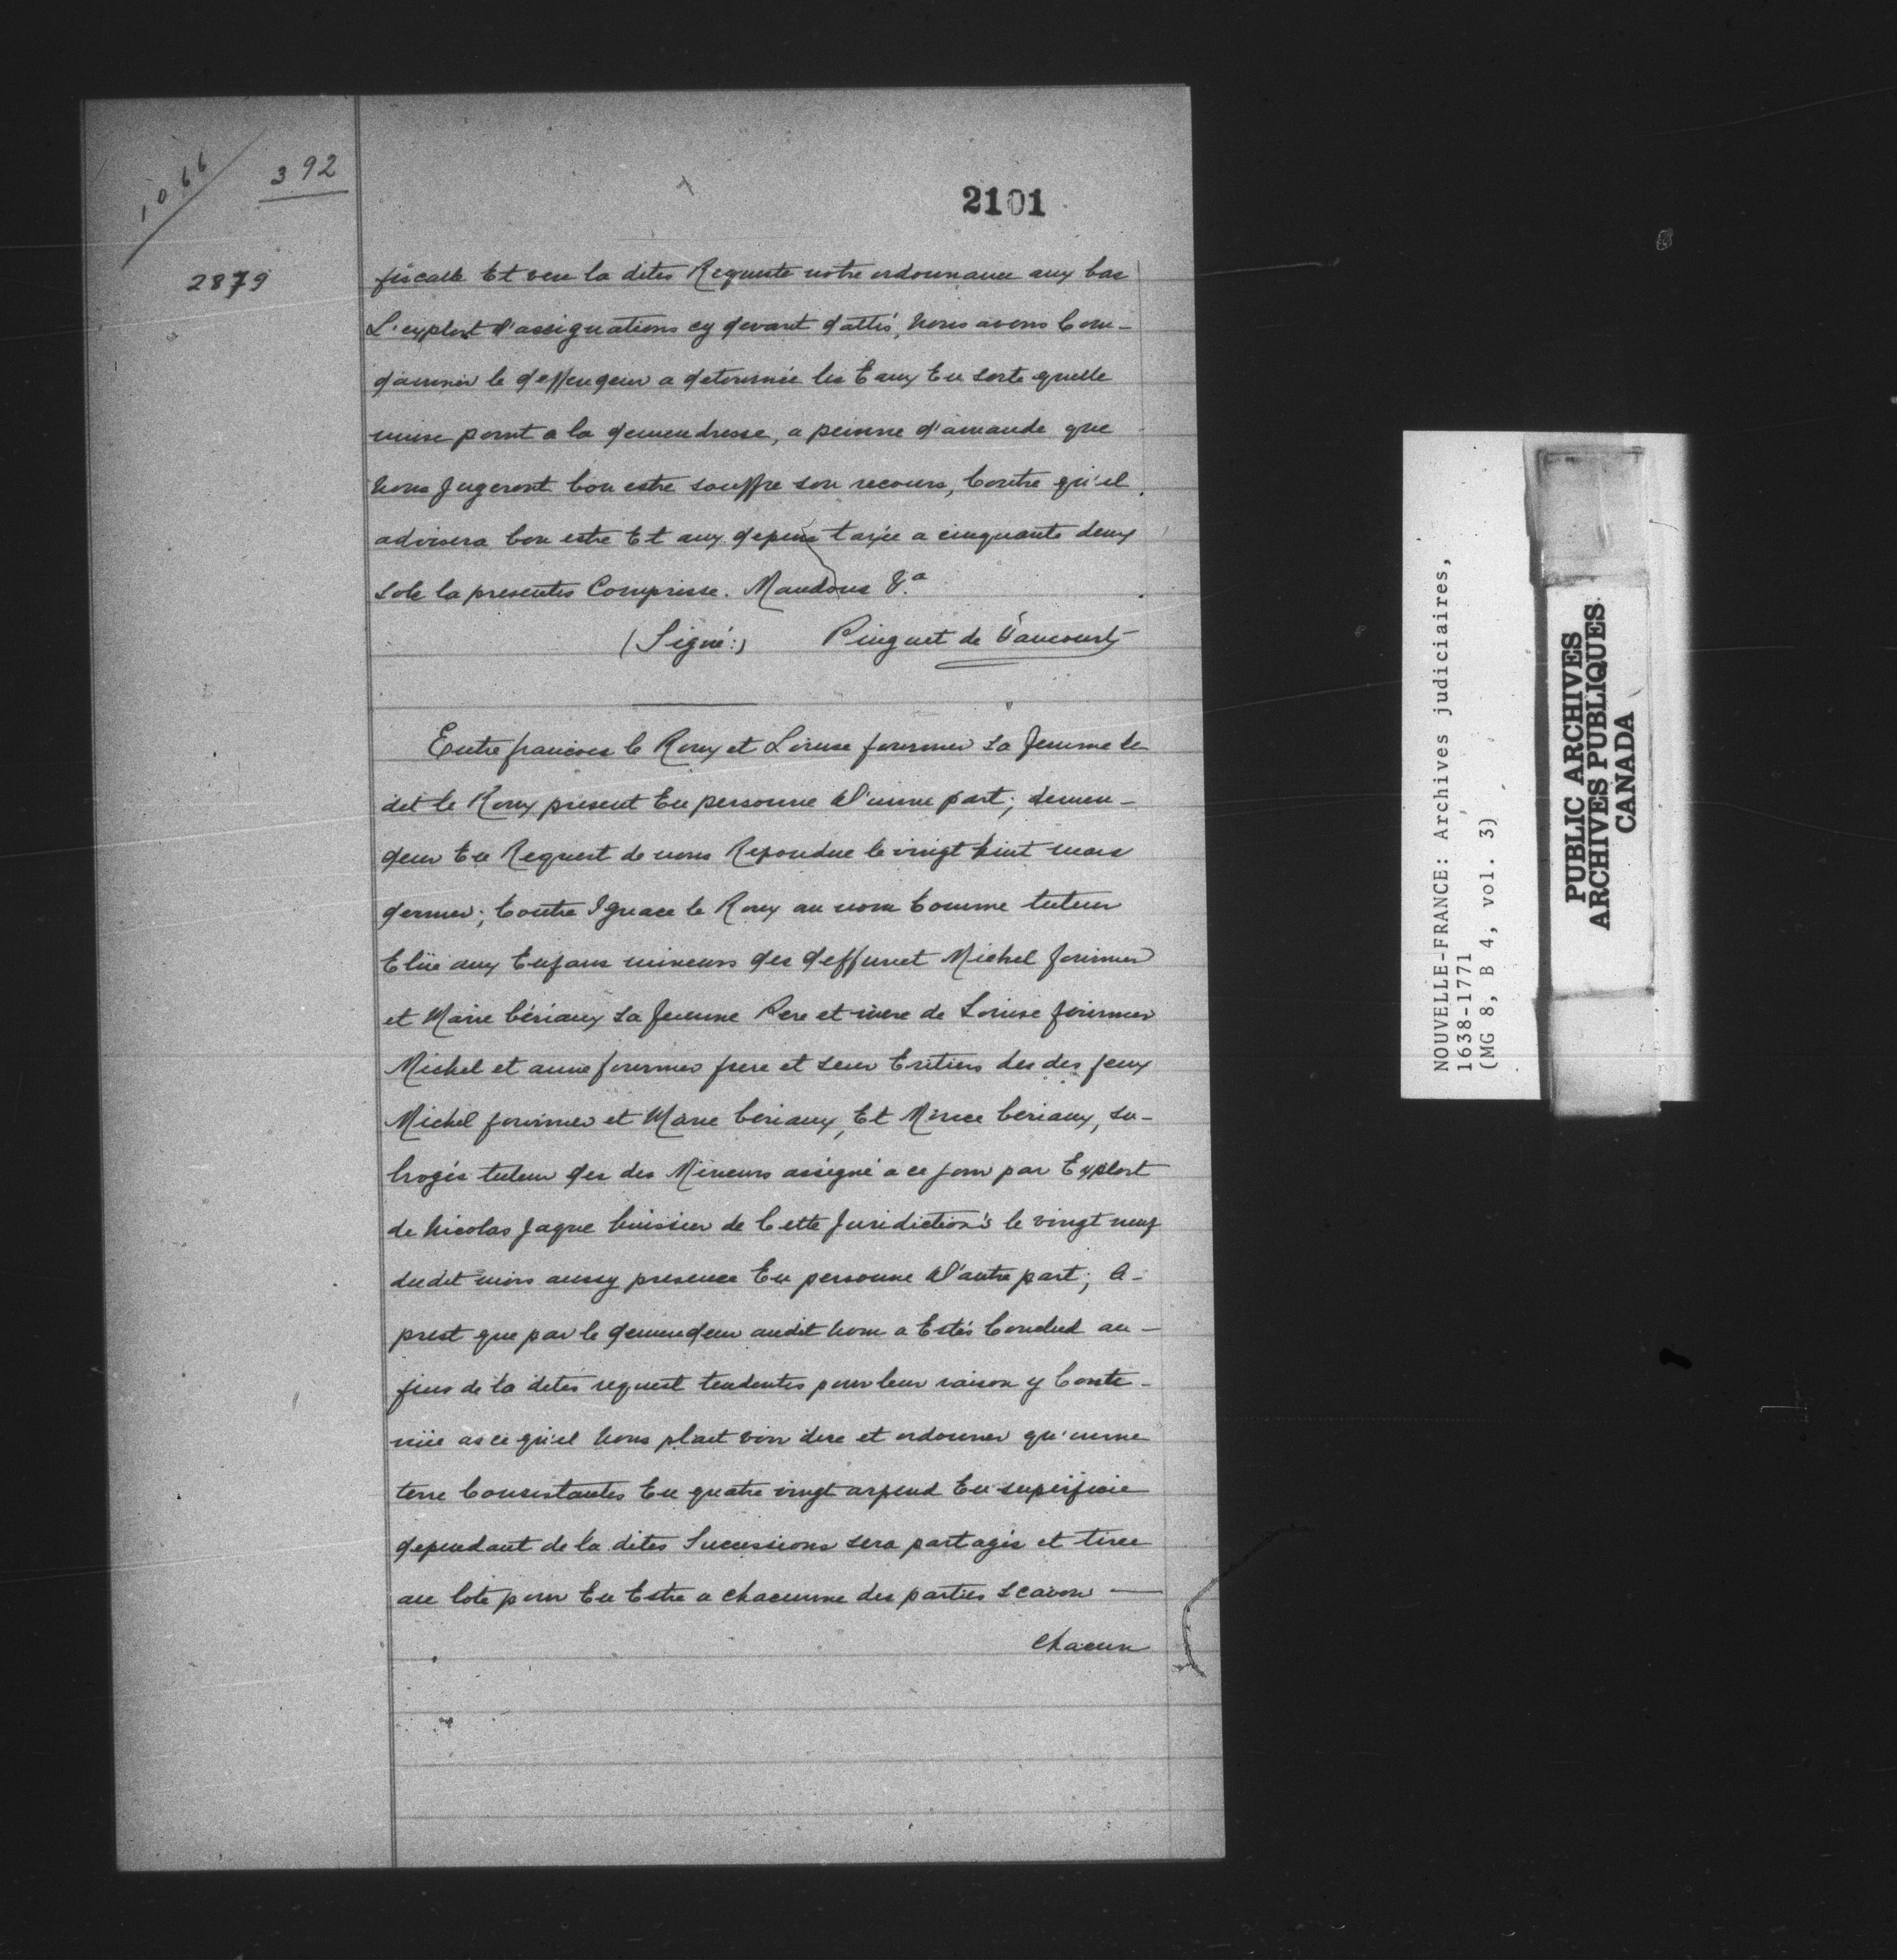 1066
392
2101
2879
fiscalle Et veu la dites Requeste notre ordonnance aux bas
L'exploit d'assignations cy devant dattés, Nous avons Con-
damner le deffendeur a detournée les Eaux En sorte quelle
nuise point a la demendresse, a peinne d'amande que
nous Jugeront bon estre souffre son recours, Contre qu'il
advisera bon estre Et aux depens taxée a cinquante deux
sols la presentes Comprisse. Mandons &a
(Signé:) Pinguet de Vaucourt
Entre francois le Roux et Louise fournier sa femme le
dit le Roux present En personne d'unne part; demen-
deur En Request de nous Repondue le vingt huit mars
dernier; Contre Ignace le Roux au nom Comme tuteur
Elüe aux Enfans mineurs des deffunct Michel fournier
et Marie bériaux sa femme Pere et mere de Louise fournier
Michel et anne fournier frere et seur Eritiers des des feux
Michel fournier et Marie beriaux, Et beriaux, su-
brogés tuteur des des Mineurs assigné a ce jour par Exploit
de Nicolas Jaque huissier de Cette Juridictions le vingt neuf
dudit mois aussy presence En personne d'autre part; A-
prest que par le demendeur audit nom a Estés Conclud au-
fins de la dites request tendentes pour leur raison y Conte-
nüe as ce qu'il nous plait voir dire et ordonner qu'unne
terre Consistantes En quatre vingt arpend En superficie
dependant de la dites Successions sera partagés et tirée
au lots pour En Estre a chacunne des parties scavoir —
chacun
NOUVELLE-FRANCE: Archives judiciaires,
1638-1771
(MG 8, B 4, vol. 3)
PUBLIC ARCHIVES
ARCHIVES PUBLIQUES
CANADA